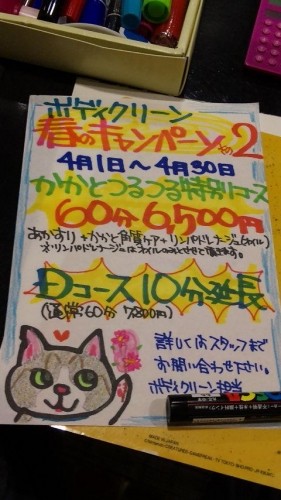 ボディクリーン
春のキャンペーンその2
4月1日～4月30日
かかとつるつる特別コース
60分 6,500円
あかすり+かかと角質ケア+リンパドレナージュ(オイル)
※リンパドレナージュはオイルのみとさせて頂きます。
Dコース10分延長
(通常60分 7,800円)
詳しくはスタッフまで
お問い合わせ下さい。
ボディクリーン担当
MADE IN JAPAN